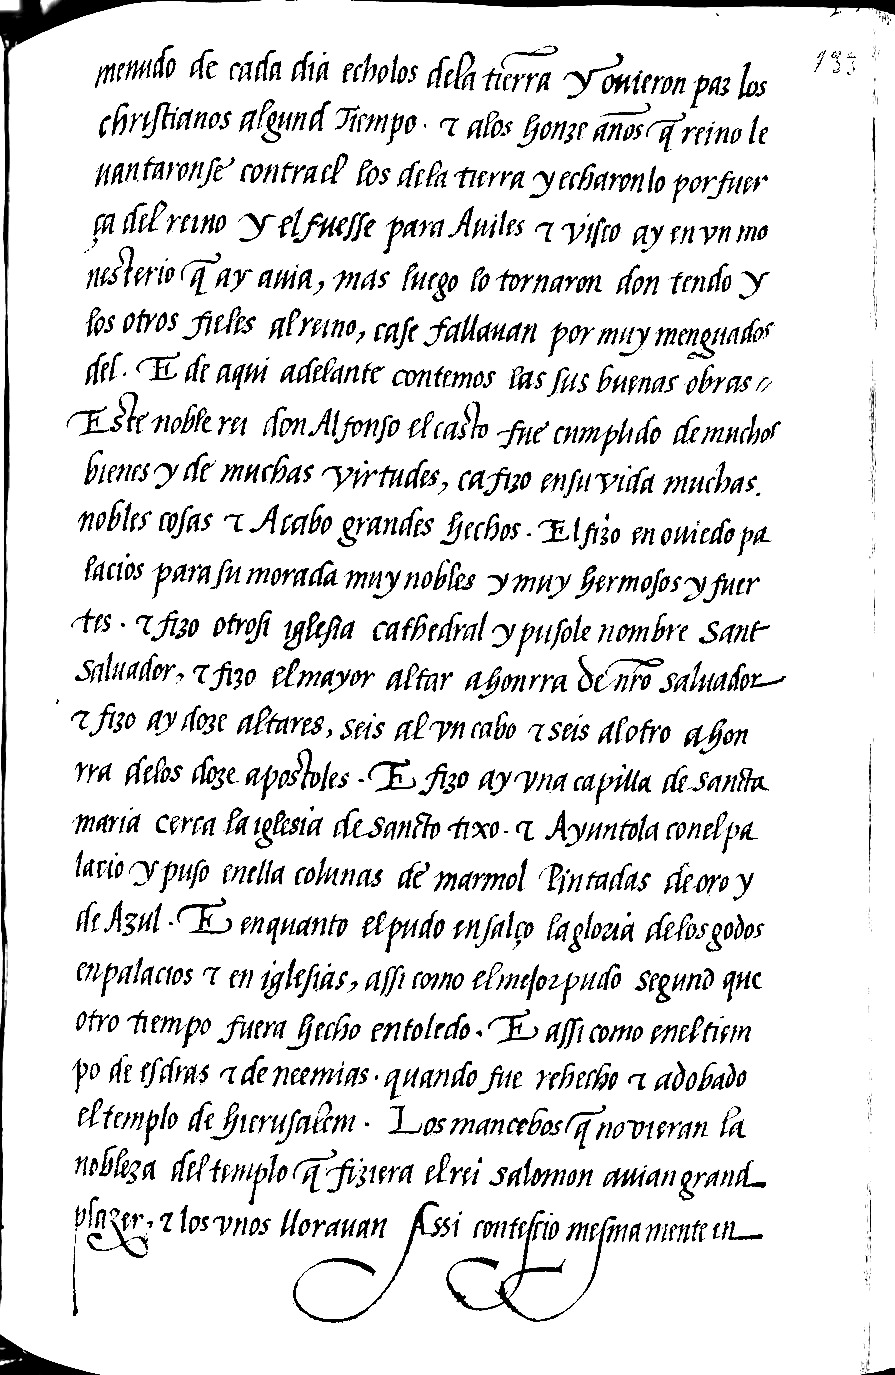 133
menudo de cada dia echolos dela tierra y ouieron paz los
christianos algund Tiempo. τ alos honze años q̃ reino le
uantaronse contrael los dela tierra y echaronlo por fuer
ça del reino y el fuesse para Auiles τ visco ay en vn mo
nesterio q̃ ay auia, mas luego lo tornaron don tendo y
los otros fieles al reino, ca se fallauan por muy menguados
del. E de aqui adelante contemos las sus buenas obras //
Este noble rei don Alfonso el casto fue cumplido de muchos
bienes y de muchas virtudes, ca fizo ensu vida muchas.
nobles cosas τ Acabo grandes hechos. El fizo en ouiedo pa
lacios para su morada muy nobles y muy hermosos y fuer
tes. τ fizo otrosi iglesia cathedral y pusole nombre sant
saluador, τ fizo el mayor altar a honrra de nr̃o saluador
τ fizo ay doze altares, seis al vn cabo τ seis al otro a hon
rra delos doze apostoles. E fizo ay vna capilla de sancta
maria cerca la iglesia de sancto tixo. τ Ayuntola conel pa
lacio y puso enella colunas de marmol Pintadas de oro y
de Azul. E enquanto el pudo ensalço la gloria delos godos
en palacios τ en iglesias, assi como el mejor pudo segund que
otro tiempo fuera hecho en toledo. E assi como enel tiem
po de esdras τ de neemias. quando fue rehecho τ adobado
el templo de hierusalem. Los mancebos q̃ no vieran la
nobleza del templo q̃ fiziera el rei salomon auian grand
plazer, τ los vnos llorauan Assi contescio mesmamente en